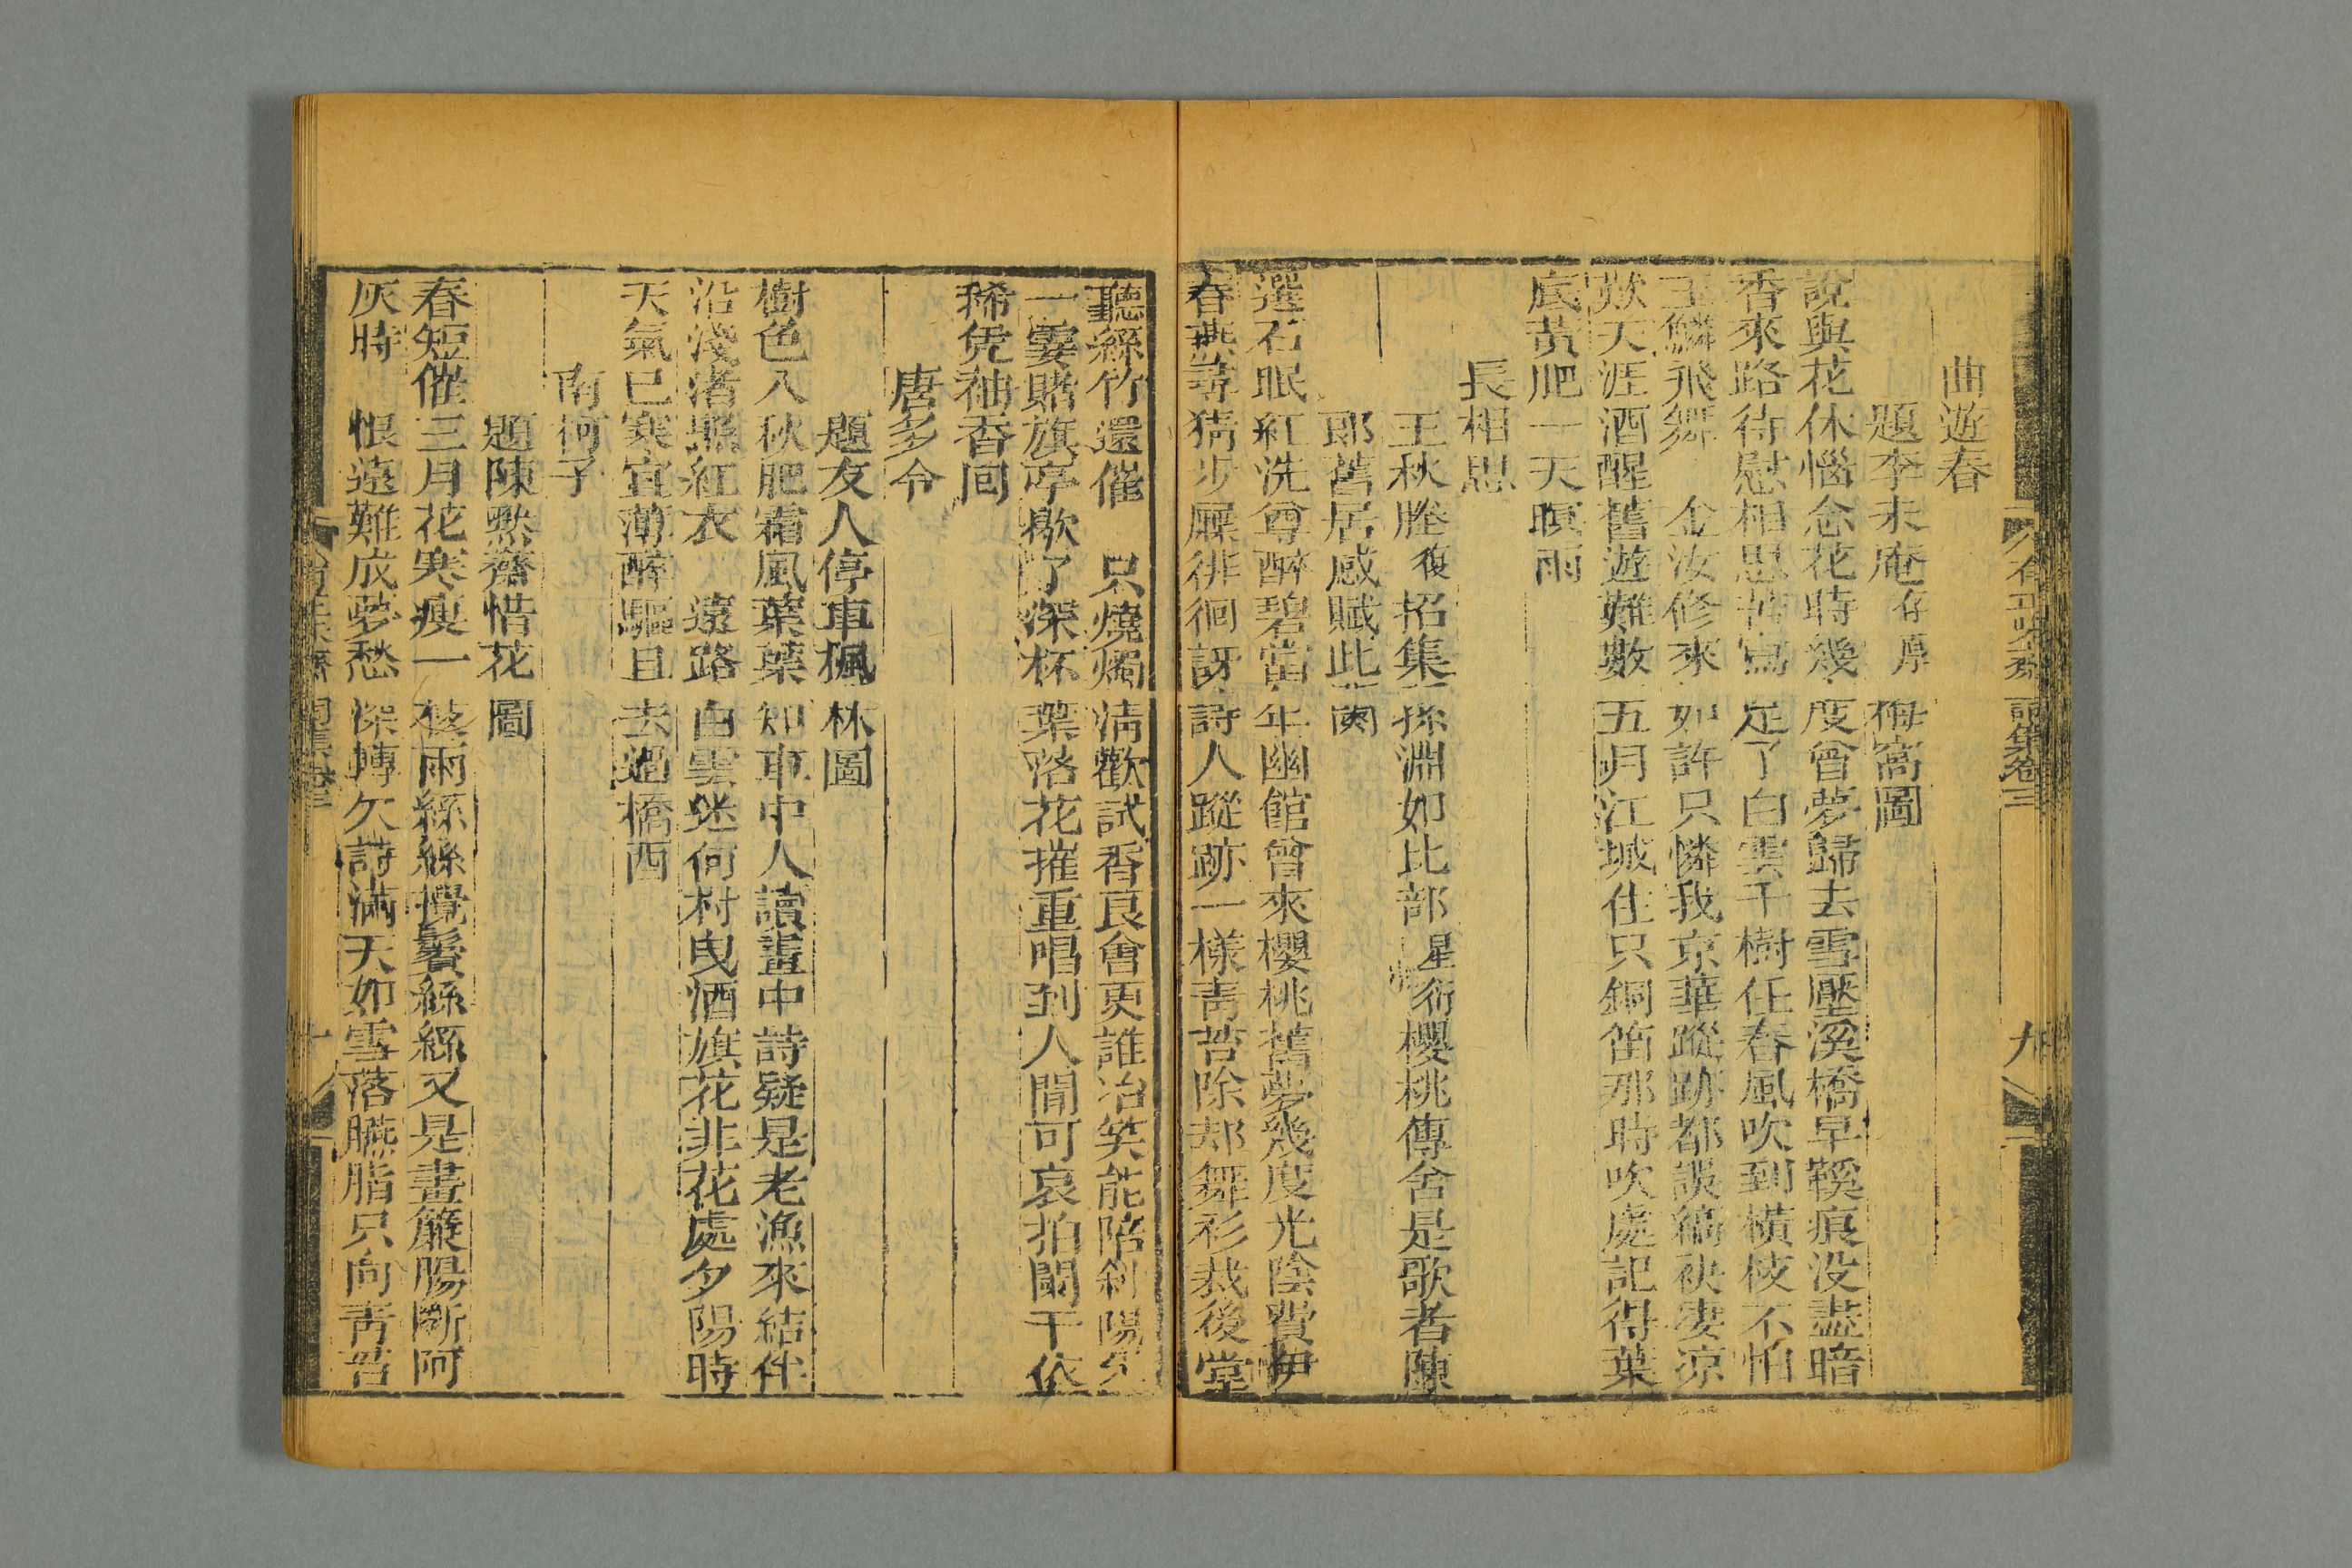 曲遊春
題李未庵存厚梅窩圖
說與花休惱念花時幾度曾夢歸去雪壓溪橋早鞵痕没盡暗
香來路待慰相思苦寫定了白雲千樹任春風吹到橫枝不怕
玉鱗飛舞 金汝修來如許只憐我京華蹤跡都誤縞袂凄凉
歎天涯酒醒舊遊難數五月江城住只銅笛那時吹處記得葉
底黃肥一天暝雨
長相思
王秋塍復招集孫淵如比部星衍櫻桃傳舍是歌者陳
郎舊居感賦此闋
選石眠紅洗尊醉碧當年幽館曾來櫻桃舊夢幾度光陰費伊
春燕尋猜步屧徘徊訝詩人蹤跡一樣靑苔除却舞衫裁後堂
聽絲竹還催 只燒燭淸歡試香良會更誰冶笑能陪斜陽
一霎賭旗亭歇了深杯葉落花摧重唱到人間可哀拍闌干依
稀凭袖香囘
唐多令
題友人停車楓林圖
樹色入秋肥霜風葉葉知車中人讀畫中詩疑是老漁來結伴
沿淺渚縣紅衣 遠路白雲迷何村曳酒旗花非花處夕陽時
天氣已寒宜薄醉驅且去過橋西
南柯子
題陳㷀齋惜花圖
春短催三月花寒瘦一枝雨絲絲攪鬢絲絲又是畫簾腸斷阿
灰時 恨遠難成夢愁深轉欠詩滿天如雪落臙脂只向靑苔